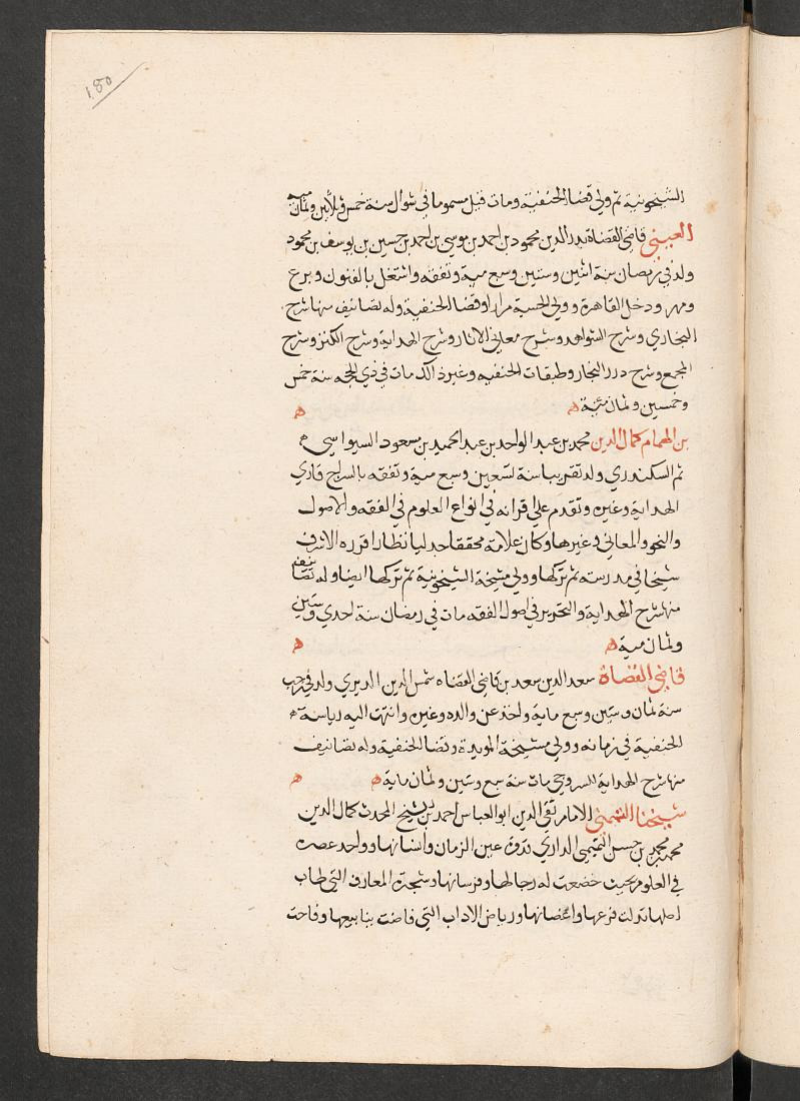 180
الشيخونية ثم ولي قضا الحنفية ومات قيل مسموما في شوال سنة خمس وثلاثين وثمان مية
العيني قاضي القضاة بدر الدين محمود بن احمد بن موسى بن احمد بن حسين بن يوسف بن محمود
ولد في رمضان سنة اثنين وستين وسبع مية وتفقه واشتغل بالفنون وبرع
ومهر ودخل القاهرة وولي الحسبة مرارا وقضا الحنفية وله تصانيف منها شرح
البخاري وشرح الشواهد وشرح معاني الاثار وشرح الهداية وشرح الكنز وشرح
المجمع وشرح درر البحار وطبقات الحنفية وغير ذالك مات في ذي الحجه سنة خمس
وخمسين وثمان مئية ه ه
بن الهمام كمال الدين محمد بن عبد الواحد بن عبد الحميد بن مسعود السيواسي
ثم السكندري ولد تقريبا سنة تسعين وسبع مية وتفقه بالسراج قاري
الهداية وغيره وتقدم علي اقرانه في انواع العلوم في الفقه والاصول
والنحو والمعاني وغيرها وكان علامة محققا جدليا نظارا قرره الاشرف
شيخا في مدرسته ثم تركها وولي مشيخة الشيخونية ثم تركها ايضا وله تصانيف
منها شرح الهداية والتحرير في اصول الفقه مات في رمضان سنة احدي وستين
وثمان مية ه ه
قاضي القضاة سعد الدين سعد بن قاضي القضاه شمس الدين الديري ولد في رجب
سنة ثمان وستين وسبع ماية واخذ عن والده وغيره وانتهت اليه رياسة
الحنفية في زمانه وولي مشيخة المويدة وقضا الحنفية وله تصانيف
منها شرح الهداية للسروجي مات سنة سبع وستين وثمان ماية ه ه
شيخنا الشمني الامام تقي الدين ابو العباس احمد بن الشيخ المحدث كمال الدين
محمد بن محمد بن حسن التميمي الداري قدوة عين الزمان وانسانها وواحد عصره
في العلوم بحيث خضعت له رجالها وفرسانها وشجرة المعارف التي طاب
اصلها فزكت فرعها واغصانها ورياض الاداب التي فاضت ينابيعها وفاحت